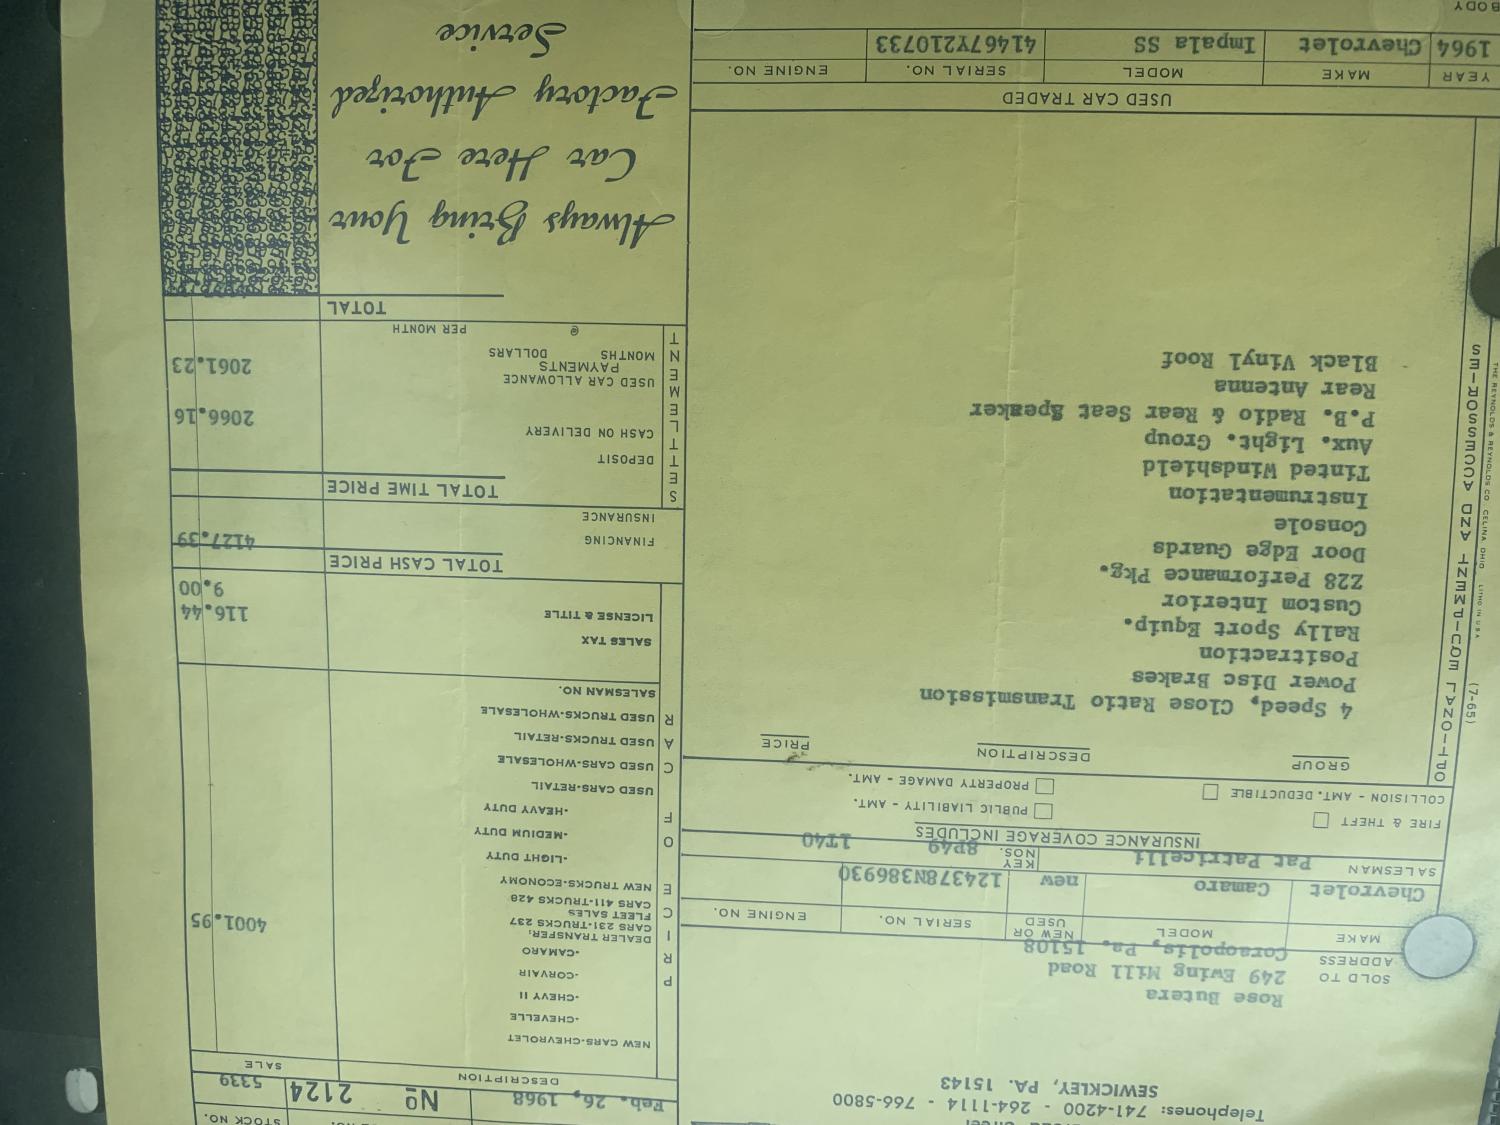 Telephones: 741-4200 - 264-1114 - 766-5800
SEWICKLEY, PA. 15143
STOCK NO.
Feb. 26, 1968
No 2124
5339
SOLD TO
ADDRESS
Rose Butera
249 Ewing Mill Road
Coraopolis, Pa. 15108
MAKE
MODEL
NEW OR USED
SERIAL NO.
ENGINE NO.
Chevrolet
Camaro
new
124378N386930
SALESMAN
Pat Patricelli
KEY NOS.
8P49
1T40
INSURANCE COVERAGE INCLUDES
FIRE & THEFT
PUBLIC LIABILITY - AMT.
COLLISION - AMT. DEDUCTIBLE
PROPERTY DAMAGE - AMT.
GROUP
DESCRIPTION
PRICE
OPTIONAL EQUIPMENT AND ACCESSORIES
4 Speed, Close Ratio Transmission
Power Disc Brakes
Positraction
Rally Sport Equip.
Custom Interior
Z28 Performance Pkg.
Door Edge Guards
Console
Instrumentation
Tinted Windshield
Aux. Light. Group
P.B. Radio & Rear Seat Speaker
Rear Antenna
Black Vinyl Roof
USED CAR TRADED
YEAR
MAKE
MODEL
SERIAL NO.
ENGINE NO.
1964
Chevrolet
Impala SS
41467Y210733
BODY
(7-65)
THE REYNOLDS & REYNOLDS CO., CELINA, OHIO LITHO IN U.S.A.
DESCRIPTION
SALE
PRICE OF CAR
NEW CARS-CHEVROLET
-CHEVELLE
-CHEVY II
-CORVAIR
-CAMARO
DEALER TRANSFER,
CARS 231-TRUCKS 237
FLEET SALES
CARS 411-TRUCKS 428
4001.95
NEW TRUCKS-ECONOMY
-LIGHT DUTY
-MEDIUM DUTY
-HEAVY DUTY
USED CARS-RETAIL
USED CARS-WHOLESALE
USED TRUCKS-RETAIL
USED TRUCKS-WHOLESALE
SALESMAN NO.
SALES TAX
LICENSE & TITLE
116.44
9.00
TOTAL CASH PRICE
4127.39
FINANCING
INSURANCE
TOTAL TIME PRICE
SETTLEMENT
DEPOSIT
CASH ON DELIVERY
2066.16
USED CAR ALLOWANCE
PAYMENTS
MONTHS
DOLLARS
2061.23
@ PER MONTH
TOTAL
Always Bring Your
Car Here For
Factory Authorized
Service